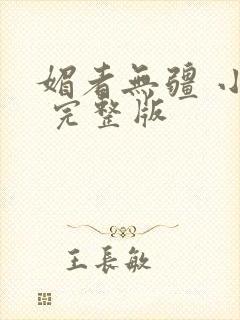 媚者無疆 小
完整版
王長敏